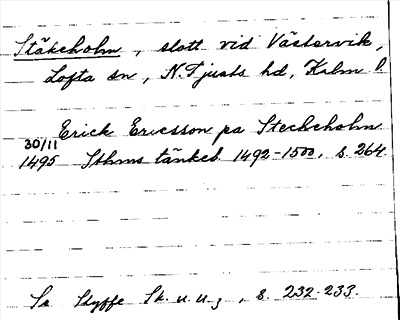 Stäkeholm, slott vid Västervik,
Lofta sn, N. Tjusts hd, Kalm l.
Erick Ericsson pa Steckeholm
30/11
1495 Sthms tänkeb. 1492-1500, s. 264.
Se Styffe Sk. u. u. 3, s. 232-233.